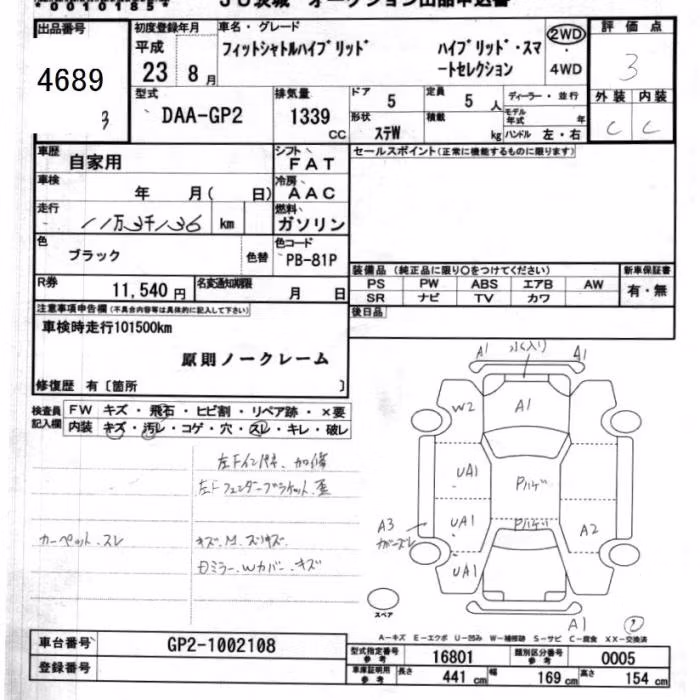 JU茨城 オークション出品申込書
出品番号 4689 3
初度登録年月 平成 23 8月
車名・グレード
フィットシャトルハイブリッド ハイブリッド・スマートセレクション
2WD・4WD
評価点 3
外装 内装
C C
型式 DAA-GP2
排気量 1339 CC
ドア 5
定員 5 人
ディーラー・並行
形状 ステW
積載 kg
モデル年式 年
ハンドル 左・右
車歴 自家用
シフト FAT
セールスポイント(正常に機能するものに限ります)
車検 年 月( 日)
冷房 AAC
走行 11万3千136 km
燃料 ガソリン
色 ブラック 色替
色コード PB-81P
R券 11,540 円
名変通知期限 月 日
装備品 (純正品に限り○をつけてください) 新車保証書
PS PW ABS エアB AW 有・無
SR ナビ TV カワ
後日品
注意事項申告欄(不具合内容等は具体的に記入して下さい)
車検時走行101500km
原則ノークレーム
修復歴 有〔箇所 〕
検査員記入欄
FW キズ・飛石・ヒビ割・リペア跡・×要
内装 キズ・汚レ・コゲ・穴・スレ・キレ・破レ
左Fインパネ、加修
左Fフェンダーブラケット、歪
カーペット、スレ
キズ、M、スリキズ、
Dミラー、Wカバー、キズ
A1 A1
W2 A1
UA1 Pハゲ
UA1 Pハゲ A2
A3
UA1
A1 2
スペア
A-キズ E-エクボ U-凹み W-補修跡 S-サビ C-腐食 XX-交換済
車台番号 GP2-1002108
登録番号
型式指定番号 参考 16801
類別区分番号 参考 0005
車庫証明用 参考 長さ 441 cm 幅 169 cm 高さ 154 cm